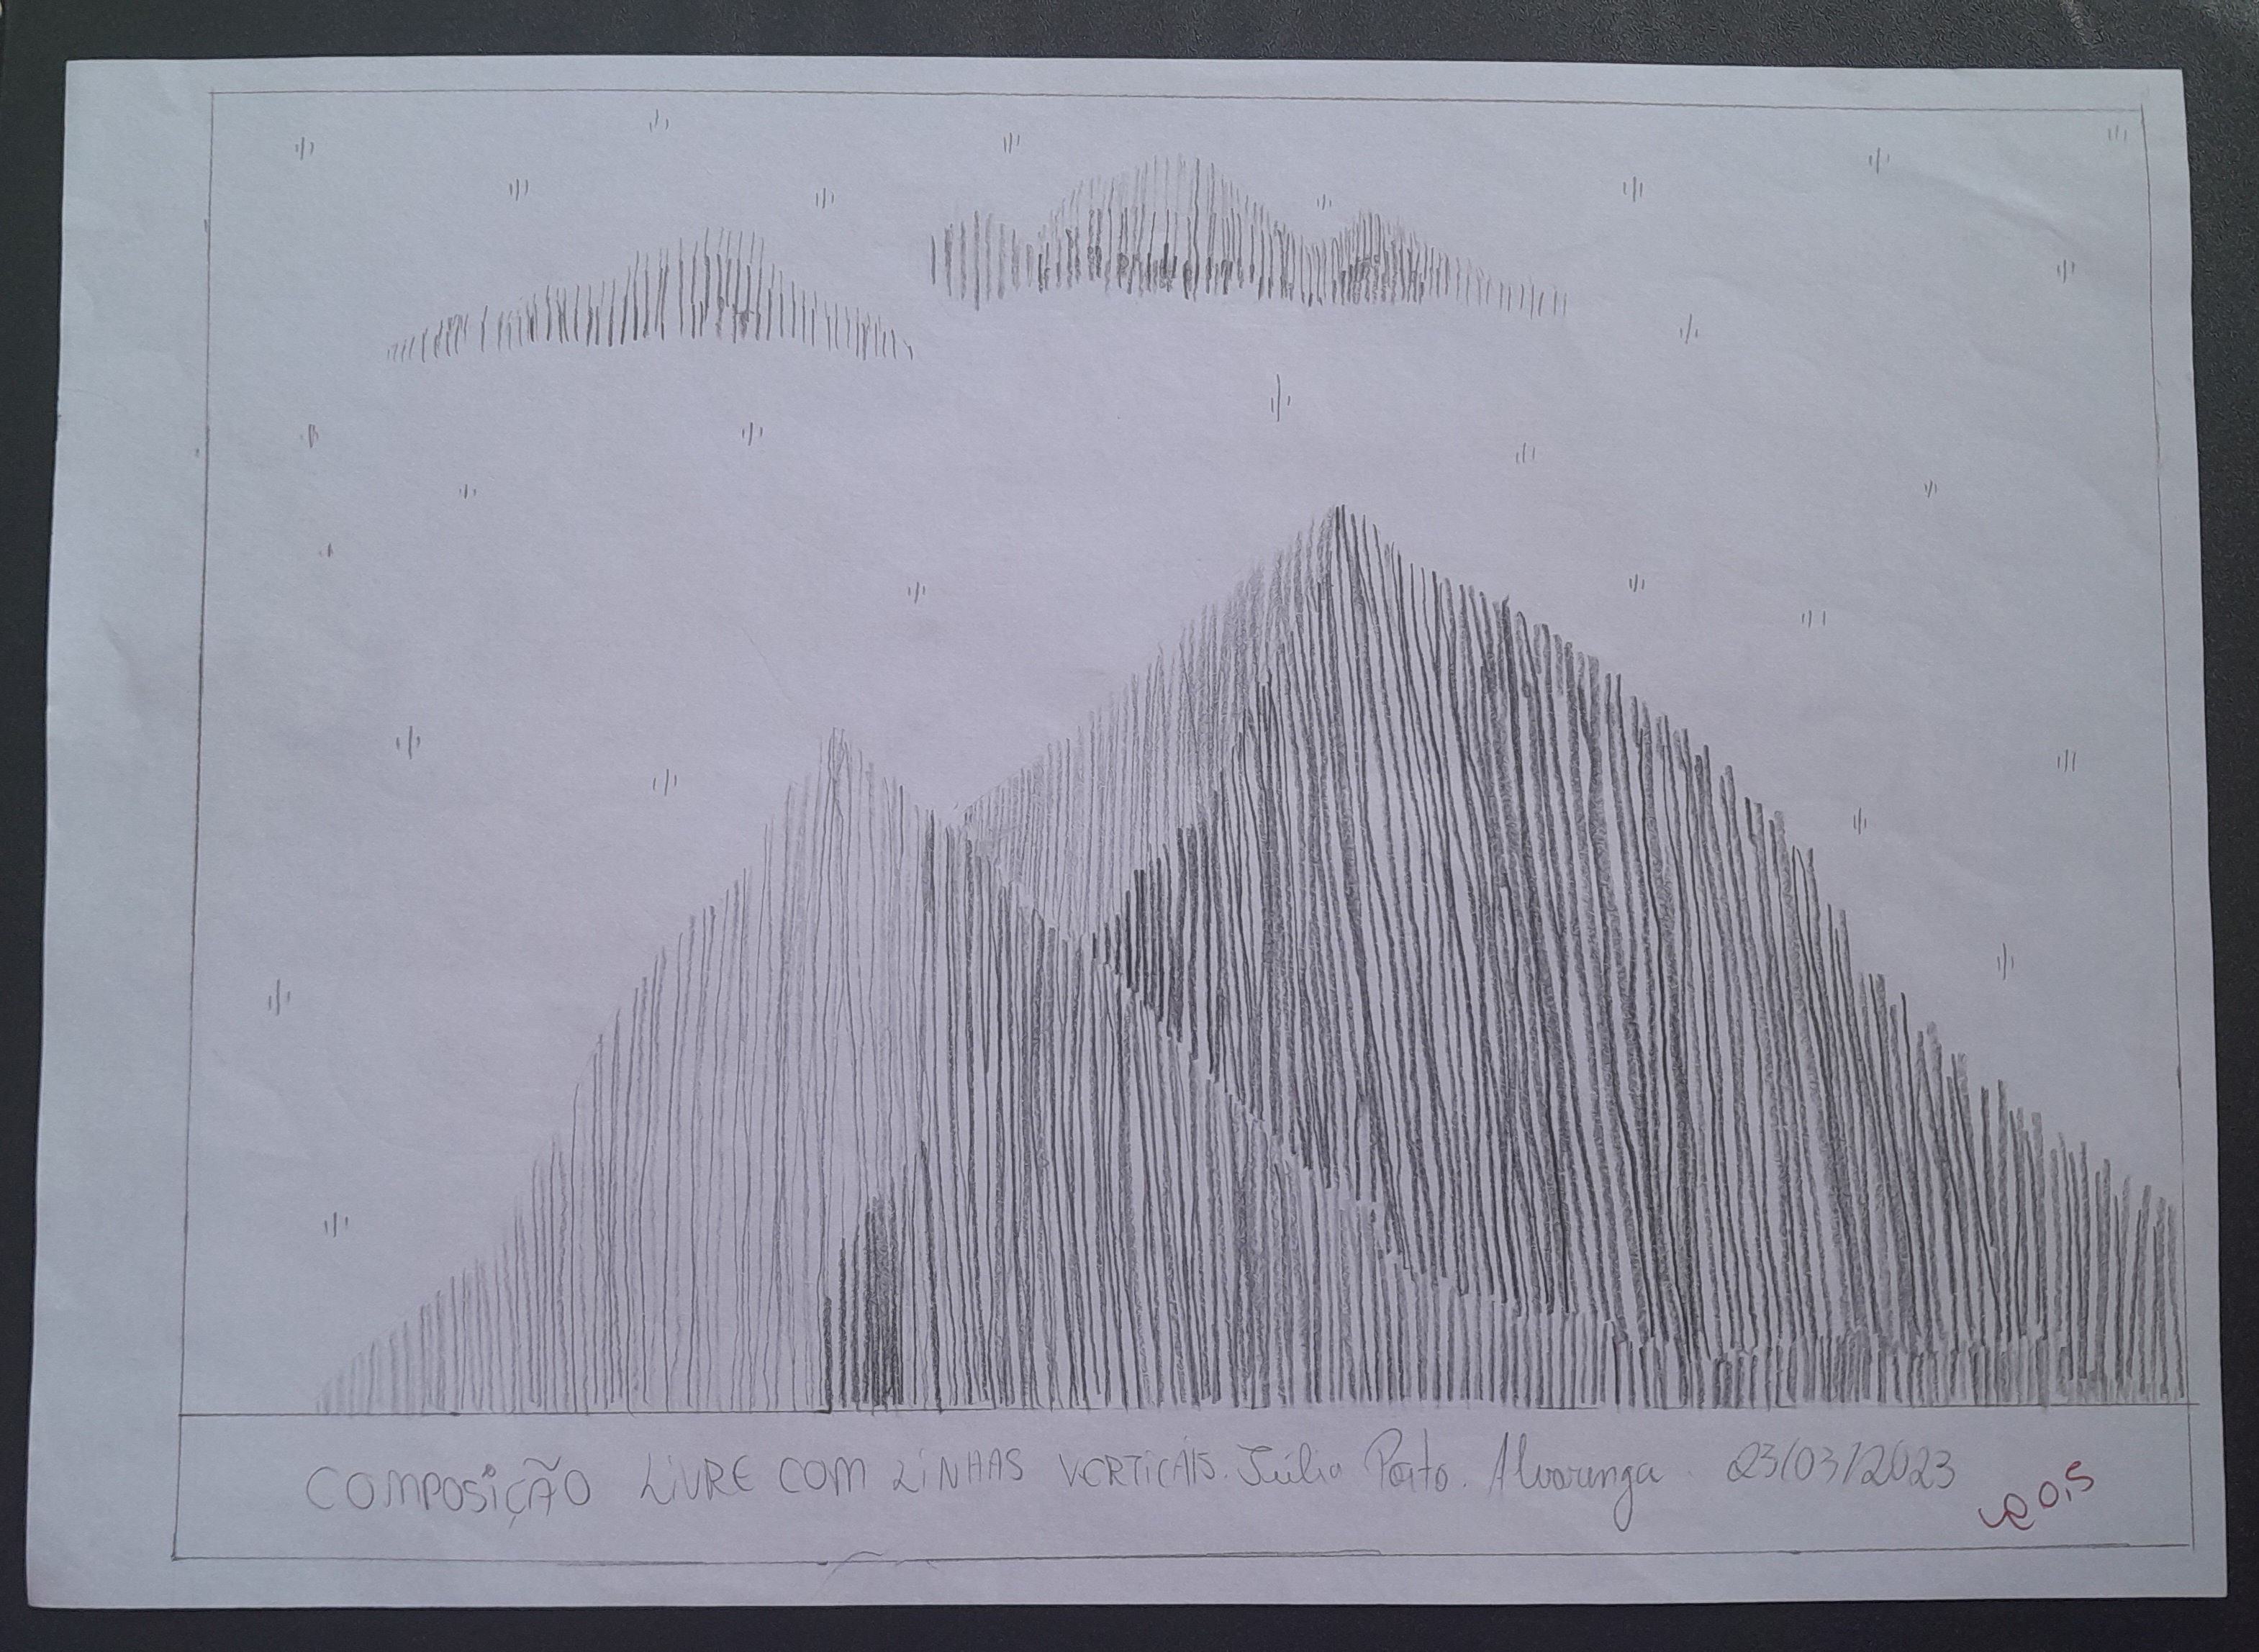 COMPOSIÇÃO LIVRE COM LINHAS VERTICAIS. Júlia Porto. Alvarenga 23/03/2023
0,5